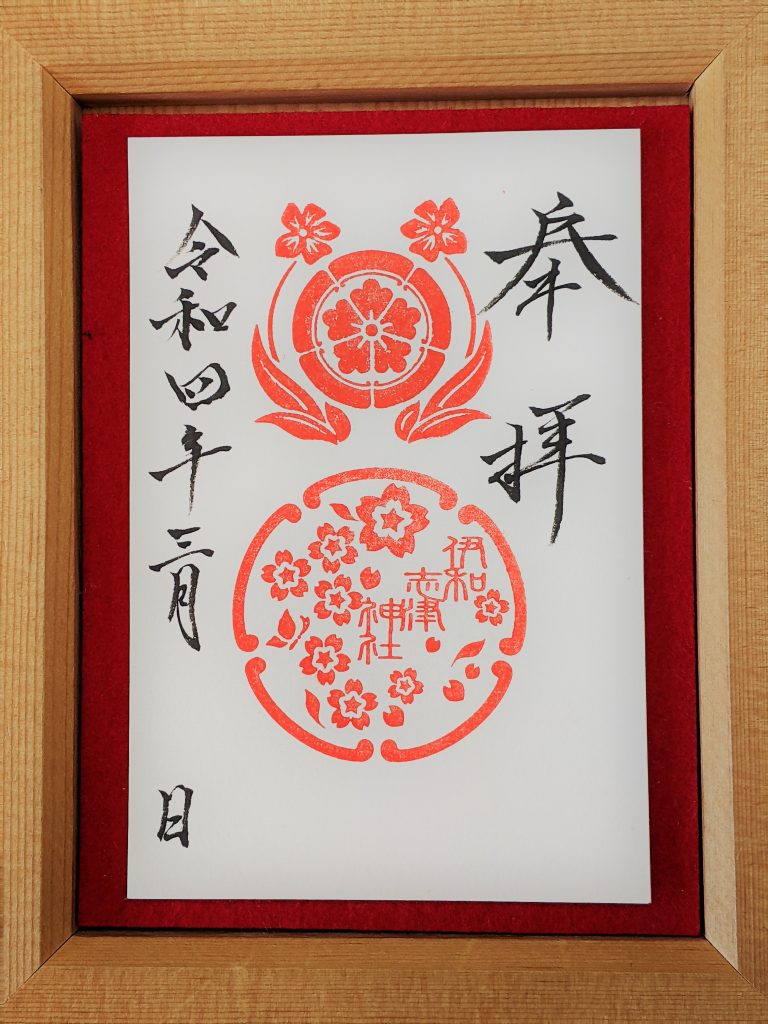 奉拝
伊和
志津
神社
令和四年三月 日